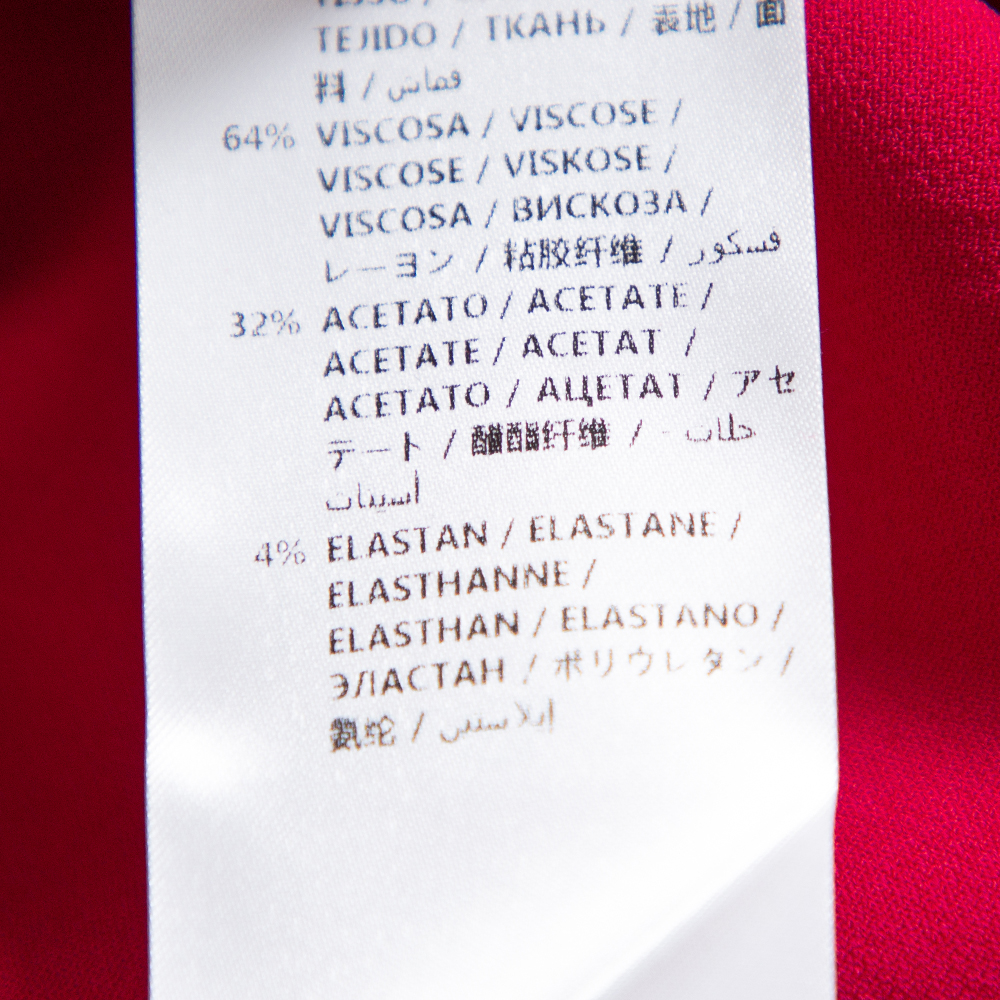 TEJIDO / ТКАНЬ / 表地 / 面
料 / قماش
64% VISCOSA / VISCOSE /
VISCOSE / VISKOSE /
VISCOSA / ВИСКОЗА /
レーヨン / 粘胶纤维 / فسكور
32% ACETATO / ACETATE /
ACETATE / ACETAT /
ACETATO / АЦЕТАТ / アセ
テート / 醋酯纤维 / - خلات
أسيتات
4% ELASTAN / ELASTANE /
ELASTHANNE /
ELASTHAN / ELASTANO /
ЭЛАСТАН / ポリウレタン /
氨纶 / إيلاستين